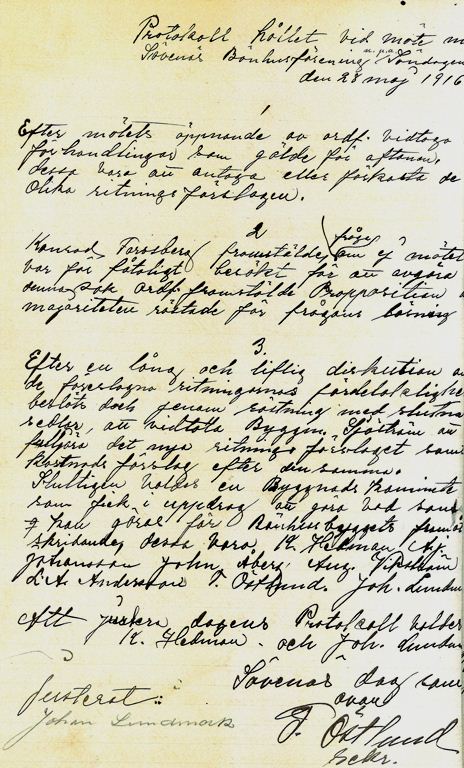 Protokoll hållet vid möte m
Sövenäs Bönhusförening n.p.a. Söndagen
den 28 maj 1916
1
Efter mötets öppnande av ordf. vidtogo
förhandlingar som gälde för aftonen.
dessa voro att antaga eller förkasta de
Olika ritnings förslagen.
2
Konrad Forssberg framstälde fråga om ej mötet
var för fåtaligt besökt för att avgöra
denna sak ordf. framstälde Propposition
majoriteten röstade för frågans
3.
Efter en lång och liflig diskution av
de föreslagna ritningarnas fördelaktighe
beslöts doch genom röstning med slutna
sedlar, att vidtala Byggm. Sjöström att
fullgöra det nya ritnings förslaget samt
Kostnads förslag efter densamma.
Slutligen valdes en Byggnads Kommitte
som fick i uppdrag att göra vad som
kan göras för Bönhusbyggets fram
skridande, dessa voro, K. Hedman,
Johansson John Åberg, Aug. Vikström
L.A. Andersson F. Östlund. Joh. Lundm
Att justera dagens Protokoll valdes
K. Hedman och Joh. Lundm
Sövenäs dag som
ovan
Justerat:
Johan Lundmark
F. Östlund
Sekr.